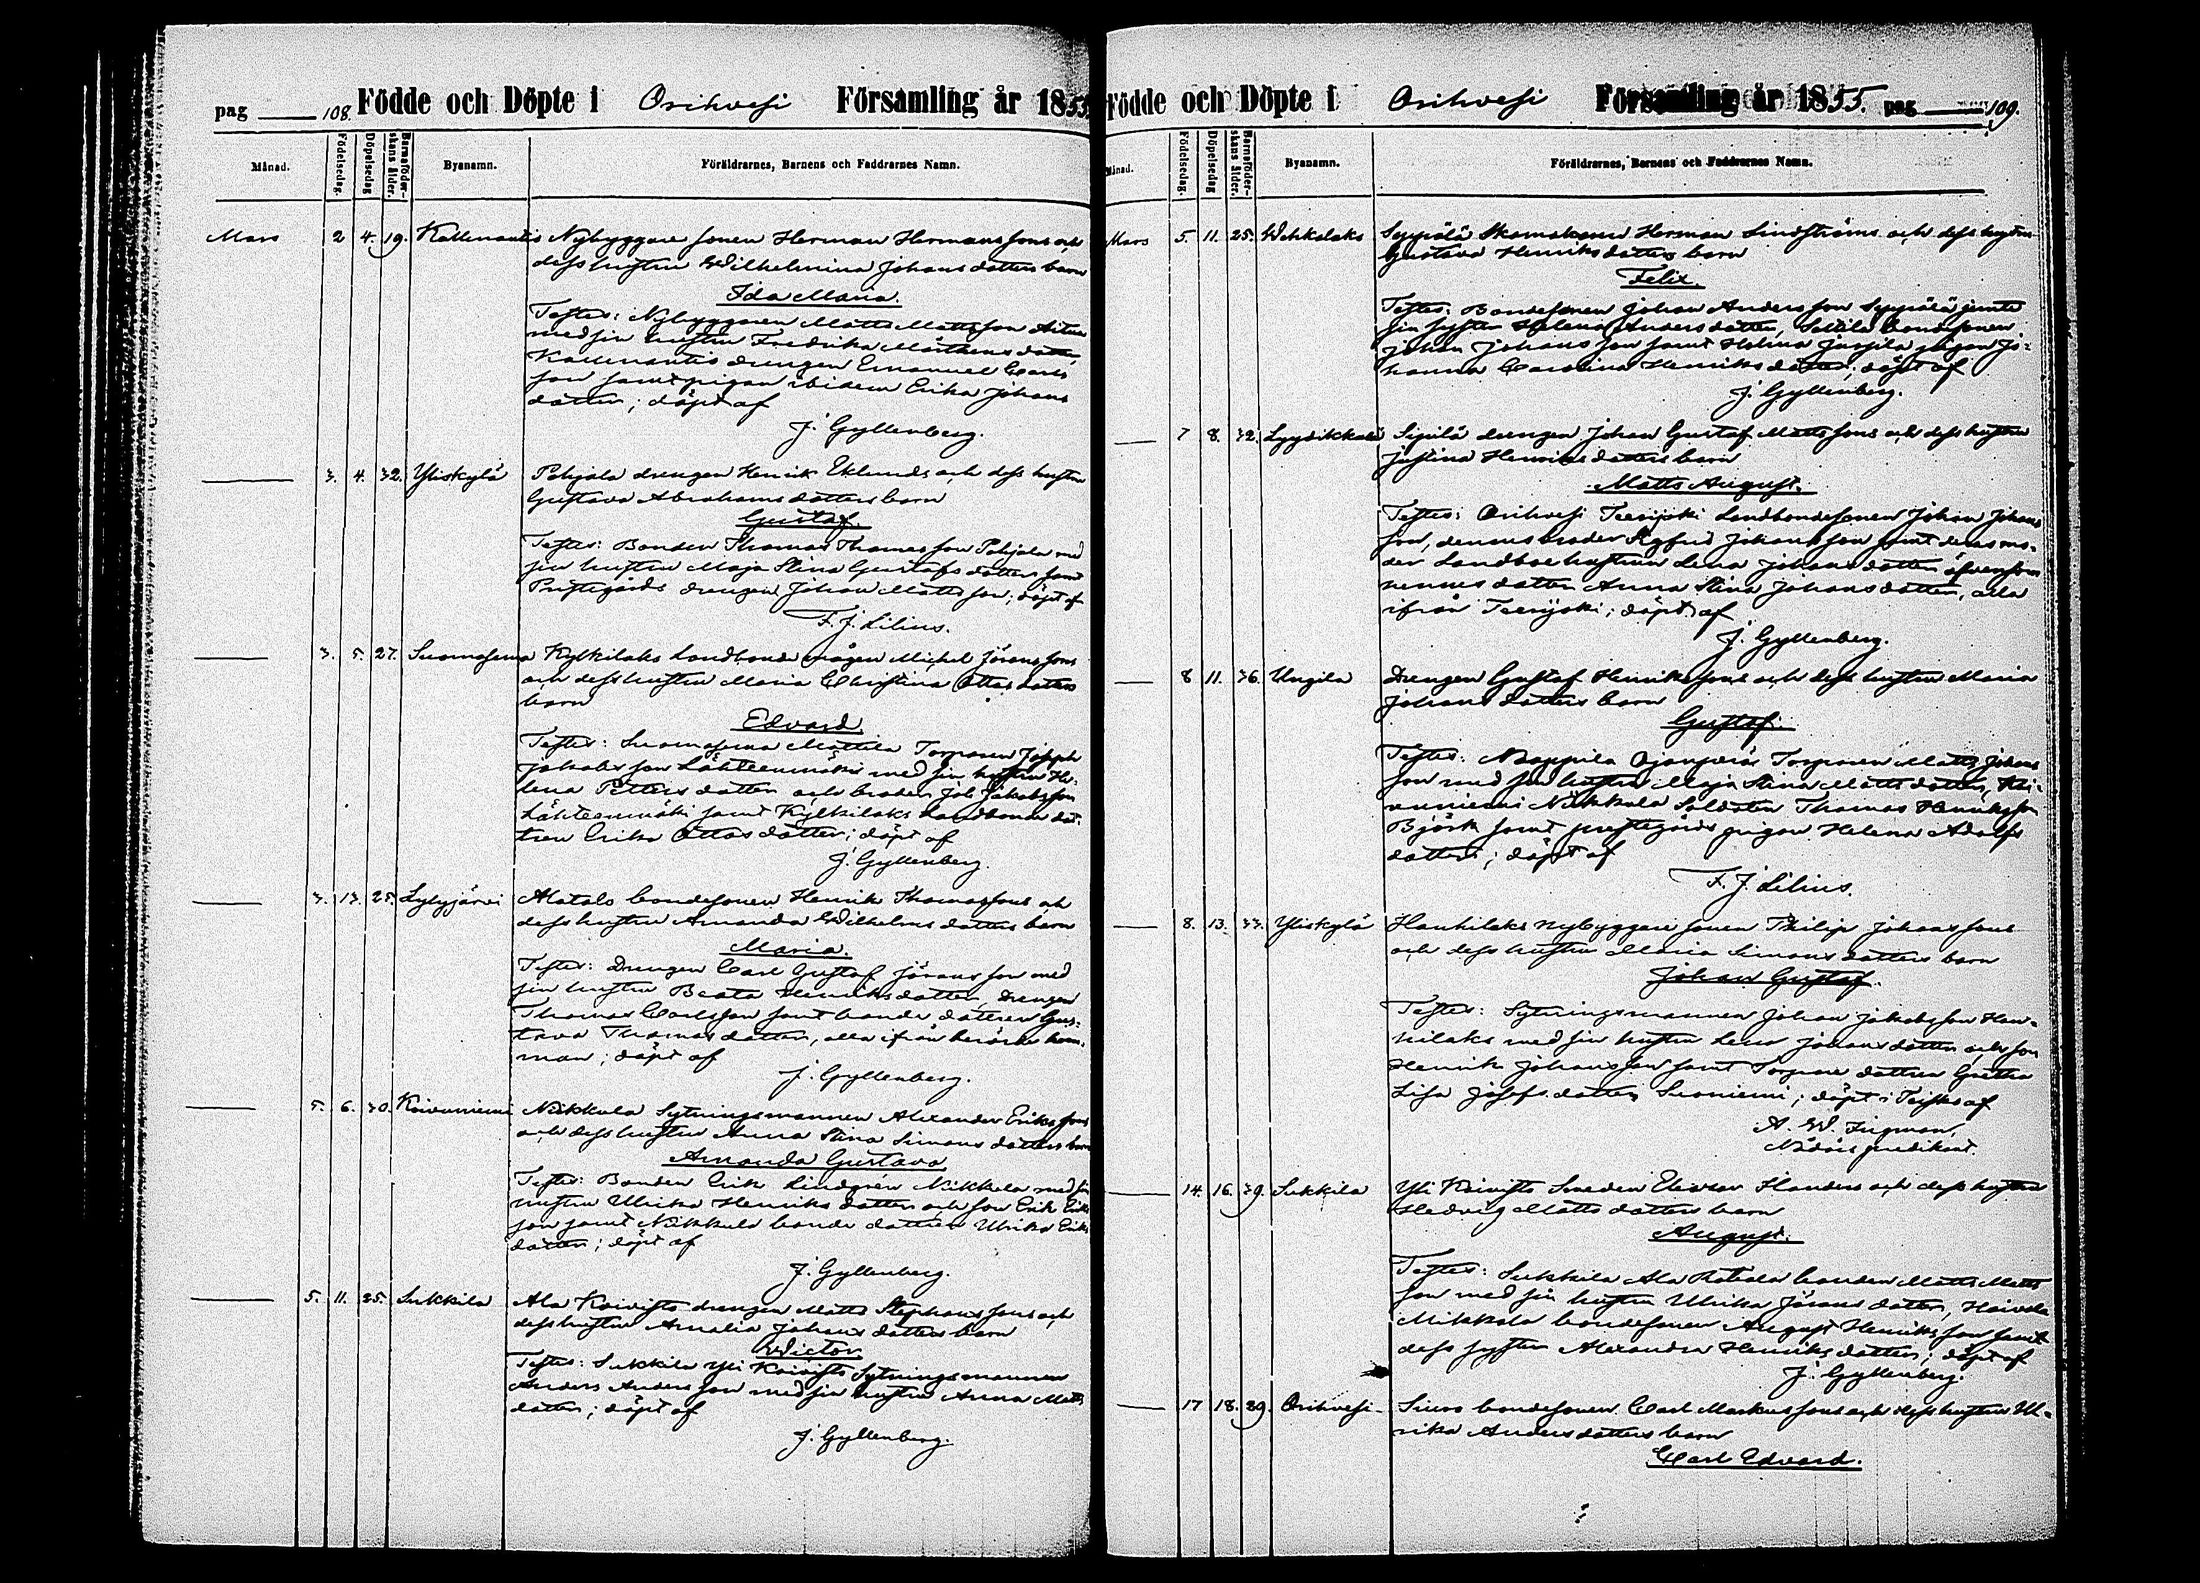 pag 108. Födde och Döpte i Orihvesi Församling år 1855.
Månad. Födelsedag. Döpelsedag Barnaföderskans ålder. Byanamn. Föräldrarnes, Barnens och Faddrarnes Namn.
Mars 2 4. 19. Nybyggare sonen Herman Hermans sons och
dess hustru Wilhelmina Johans dotters barn
Ida Maria.
Testes: Nybyggaren Matts Mattsson
med sin hustru Fredrika Mårtens dotter,
drengen Emanuel Carls
son samt pigan ibidem Erika Johans
dotter; döpt af
J. Gyllenberg.
3. 4. 32. Yliskylä Pohjala drengen Henrik Eklunds och dess hustru
Gustava Abrahams dotters barn
Gustaf.
Testes: Bonden Thomas Thomasson Pohjala med
sin hustru Maja Stina Gustafs dotter samt
Prestgårds drengen Johan Mattsson; döpt af
F. J. Lilius.
3. 5. 27. Suomasema Kylkilaks Landbonde mågen Michel Jöransons
och dess hustru Maria Christina Ottos dotters
barn
Edvard.
Testes: Suomasema Mattila Torparen Joseph
Jakobsson Lähteenmäki med sin hustru He-
lena Petters dotter och broder Joh. Jakobsson
Lähteenmäki samt Kylkilaks Landbonde dot-
tren Erika Ottos dotter; döpt af
J. Gyllenberg.
3. 13. 25. Lyhyjärvi Alatalo bondesonen Henrik Thomassons och
dess hustru Amanda Wilhelms dotters barn
Maria.
Testes: Drengen Carl Gustaf Jöransson med
sin hustru Beata Henriks dotter, Drengen
Thomas Carlsson samt bonde dottren Gus-
tava Thomas dotter, alla ifrån berörde hem-
man; döpt af
J. Gyllenberg.
5. 6. 30. Koivuniemi Nikkula Sytningsmannen Alexander Eriks sons
och dess hustru Anna Stina Simons dotters barn
Amanda Gustava
Testes: Bonden Erik Lindgren Nikkula med sin
hustru Ulrika Henriks dotter och son Erik Eriks
son samt Nikkula bonde dottren Ulrika Eriks
dotter; döpt af
J. Gyllenberg.
5. 11. 25. Sukkila Ala Koivisto drengen Matts Stephans sons och
dess hustru Amalia Johans dotters barn
Wictor
Testes: Sukkila Yli Koivisto Sytningsmannen
Anders Andersson med sin hustru Anna Matts
dotter; döpt af
J. Gyllenberg.
Födde och Döpte i Orihvesi Församling år 1855. pag 109.
Månad. Födelsedag. Döpelsedag Barnaföderskans ålder. Byanamn. Föräldrarnes, Barnens och Faddrarnes Namn.
Mars 5. 11. 25. Wehkalaks Seppälä Skomakaren Herman Lindströms och dess hustru
Gustava Henriks dotters barn
Felix.
Testes: Bondesonen Johan Andersson Seppälä jemte
sin syster Helena Anders dotter, bondesonen
Johan Johansson samt pigan Jo-
hanna Carolina Henriks dotter; döpt af
J. Gyllenberg.
7 8. 32. Lyydikkälä Sipilä drengen Johan Gustaf Mattssons och dess hustru
Justina Henriks dotters barn
Matts August.
Testes: Orihvesi Teerijoki Landbondesonen Johan Johans
son, dennes broder Sigfrid Johansson samt deras mo-
der Landboe hustrun Lena Johans dotter äfvensom
hennes dotter Anna Stina Johans dotter, alla
ifrån Teerijoki; döpt af
J. Gyllenberg.
8 11. 36. Ungila Drengen Gustaf Henrikssons och dess hustru Maria
Johans dotters barn
Gustaf.
Testes: Torparen Matts Johans
son med sin hustru Maja Stina Matts dotter, Koi-
vuniemi Nikkula Soldaten Thomas Henriksson
Björk samt prestgårds pigan Helena Adolfs
dotter; döpt af
F. J. Lilius.
8. 13. 33. Yliskylä Hanhilaks Nybyggare sonen Philip Johans sons
och dess hustru Maria Simons dotters barn
Johan Gustaf.
Testes: Sytningsmannen Johan Jakobsson Han-
hilaks med sin hustru Lena Johans dotter och son
Henrik Johansson samt Torpare dottren Gretha
Lisa Josefs dotter Suoniemi; döpt i af
A. W. Ingman,
Nådårs predikant.
14. 16. 39. Sukkila Yli Koivisto Smeden Flanders och dess hustru
Hedvig Matts dotters barn
August.
Testes: Sukkila Ala bonden Matts Matts
son med sin hustru Ulrika Jörans dotter,
Mikkola bondesonen August Henriksson samt
dess syster Alexandra Henriks dotter; döpt af
J. Gyllenberg.
17 18. 29. Orihvesi Siuro bondesonen Carl Markussons och dess hustru Ul-
rika Anders dotters barn
Carl Edvard.